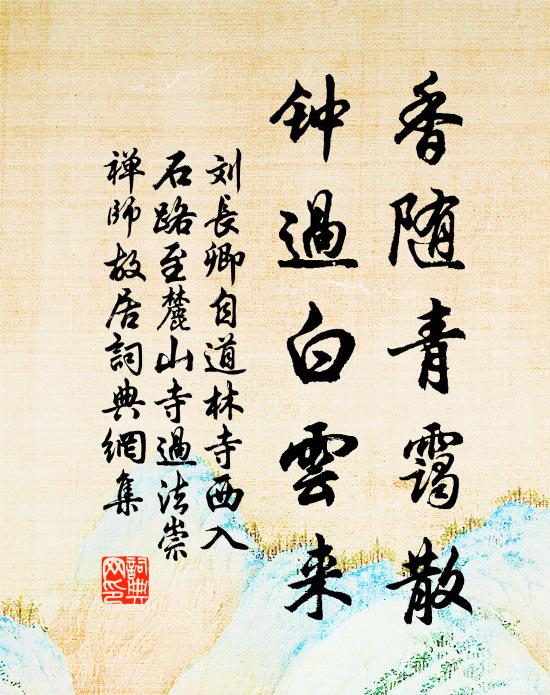 香随青靄散
钟過白雲来
刘長卿自道林寺西入
石路至麓山寺過法崇
禅師故居詞典網集
詞典
网印